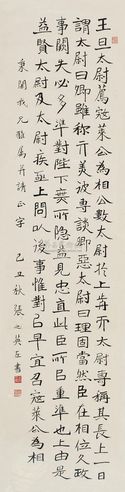 王旦太尉薦寇萊公為相公數太尉於上前而太尉專稱其長上一日
謂太尉曰卿雖稱其美彼專談卿惡太尉曰理固當然臣在相位久政
事闕失必多準對陛下無所隱見忠直此臣所以重準也上由是
益賢太尉及太尉疾亟上問以後事惟對以早宜召寇萊公為相
東閣我兄雅屬并請正字 己丑秋張之英左書